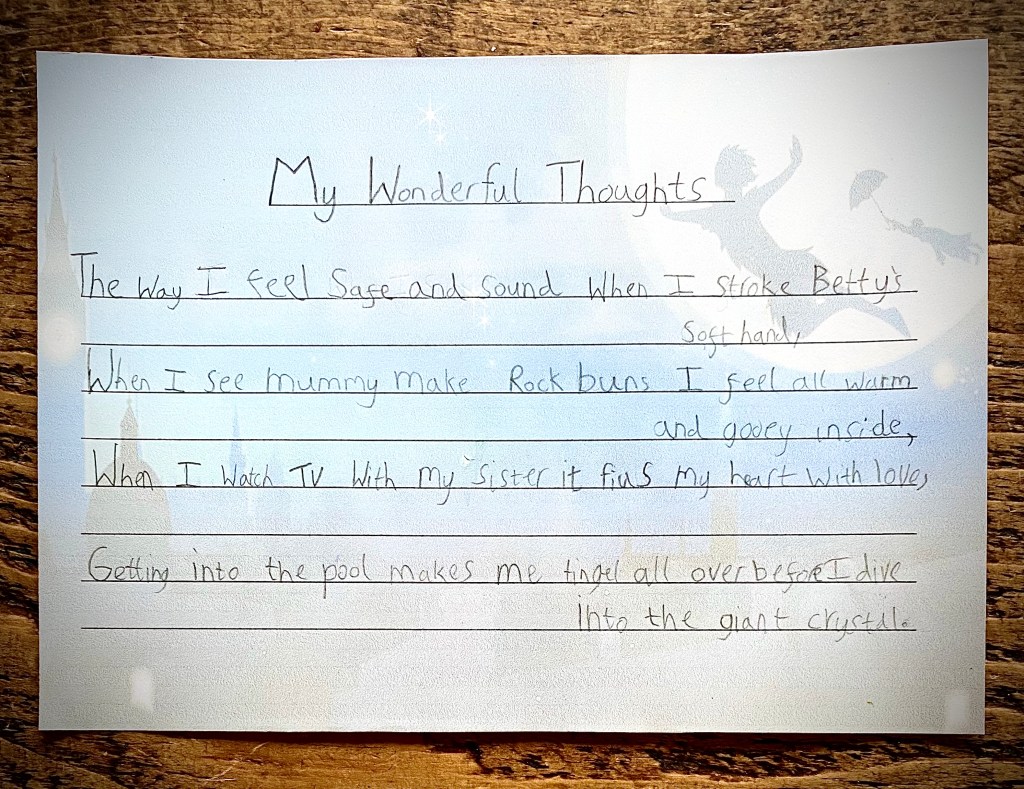 My Wonderful Thoughts
The way I feel Safe and sound When I stroke Betty's
soft hand,
When I see mummy make Rock buns I feel all warm
and gooey inside,
When I Watch TV With my sister it fills my heart With love,
Getting into the pool makes me tingel all over before I dive
into the giant crystal.